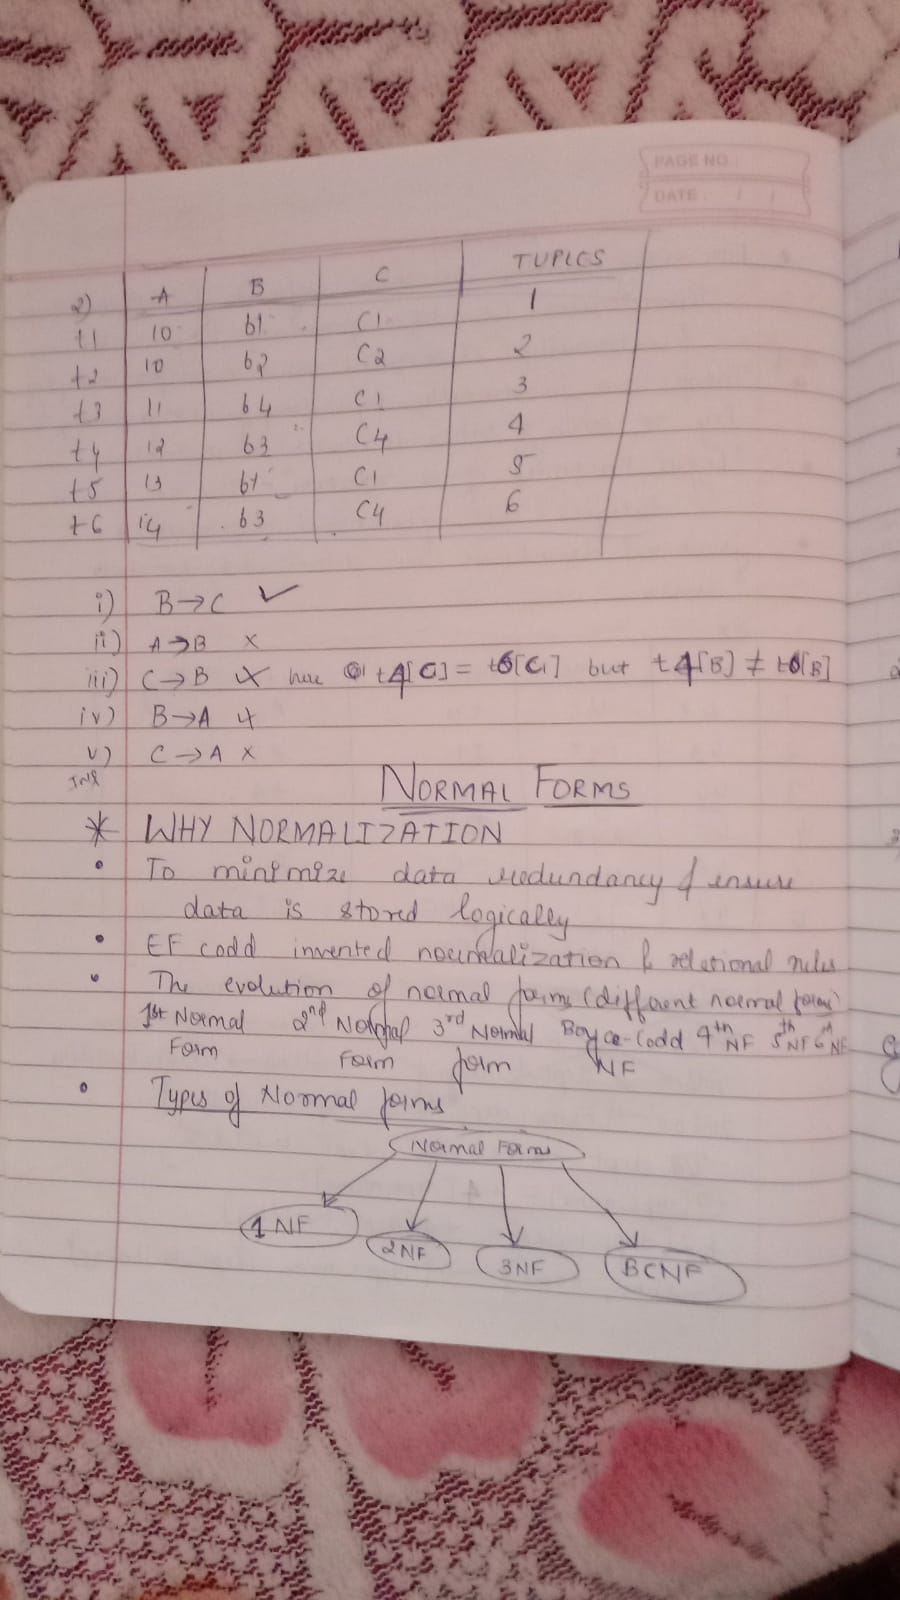 PAGE NO.
DATE: / /
2) A B C TUPLES
t1 10 b1 C1 1
t2 10 b2 C2 2
t3 11 b4 C1 3
t4 12 b3 C4 4
t5 13 b1 C1 5
t6 14 b3 C4 6
i) B→C ✓
ii) A→B X
iii) C→B X here t4[C] = t6[C] but t4[B] ≠ t6[B]
iv) B→A X
v) C→A X
NORMAL FORMS
* WHY NORMALIZATION
• To minimize data redundancy & ensure
data is stored logically
• EF codd invented normalization & relational rules
• The evolution of normal forms (different normal forms)
1st Normal 2nd Normal 3rd Normal Boyce-Codd 4th NF 5th NF 6th NF
Form Form form NF
• Types of Normal forms
Normal Forms
1 NF 2NF 3NF BCNF